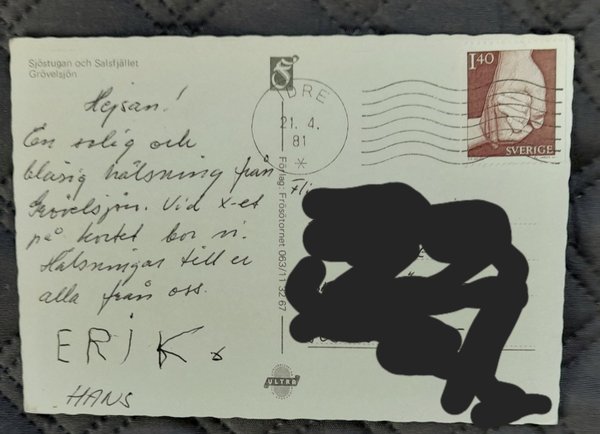 Sjöstugan och Salsfjället
Grövelsjön
Hejsan!
En solig och
blåsig hälsning från
Grövelsjön. Vid x-et
på kortet bor vi.
Hälsningar till er
alla från oss.
ERIK
HANS
Förlag: Frösötornet 063/11 32 67
ULTRA
IDRE
21. 4.
81
1.40
SVERIGE